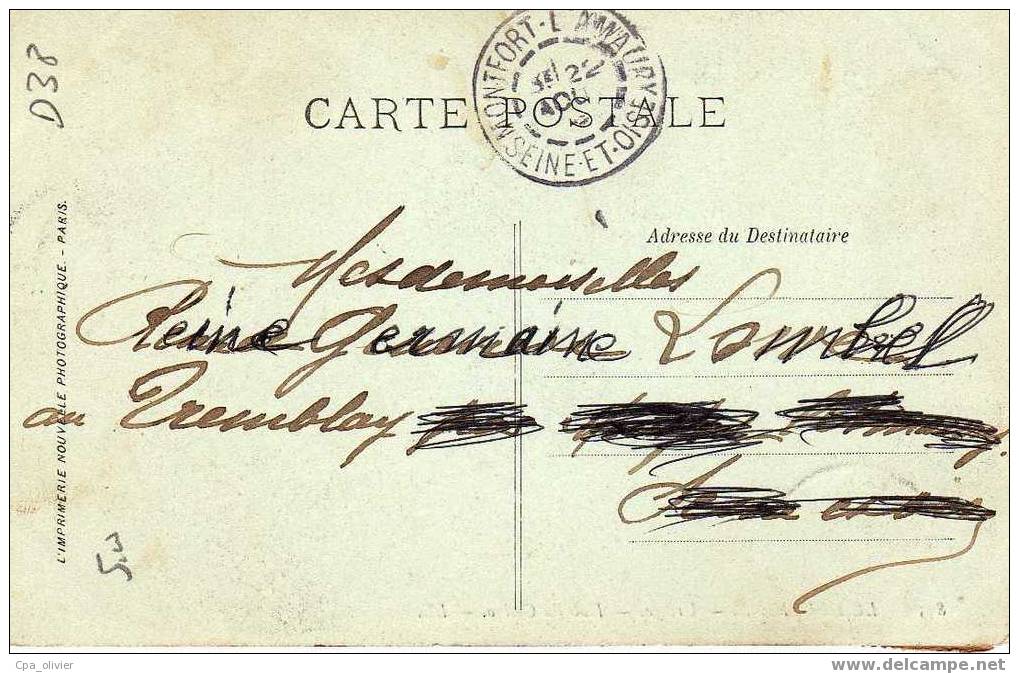 D38
MONTFORT-L'AMAURY
22
AOU
SEINE-ET-OISE
CARTE POSTALE
Adresse du Destinataire
Mesdemoiselles
Reine Germaine Lombel
au Tremblay
L'IMPRIMERIE NOUVELLE PHOTOGRAPHIQUE. - PARIS.
Cpa_olivier
www.delcampe.net